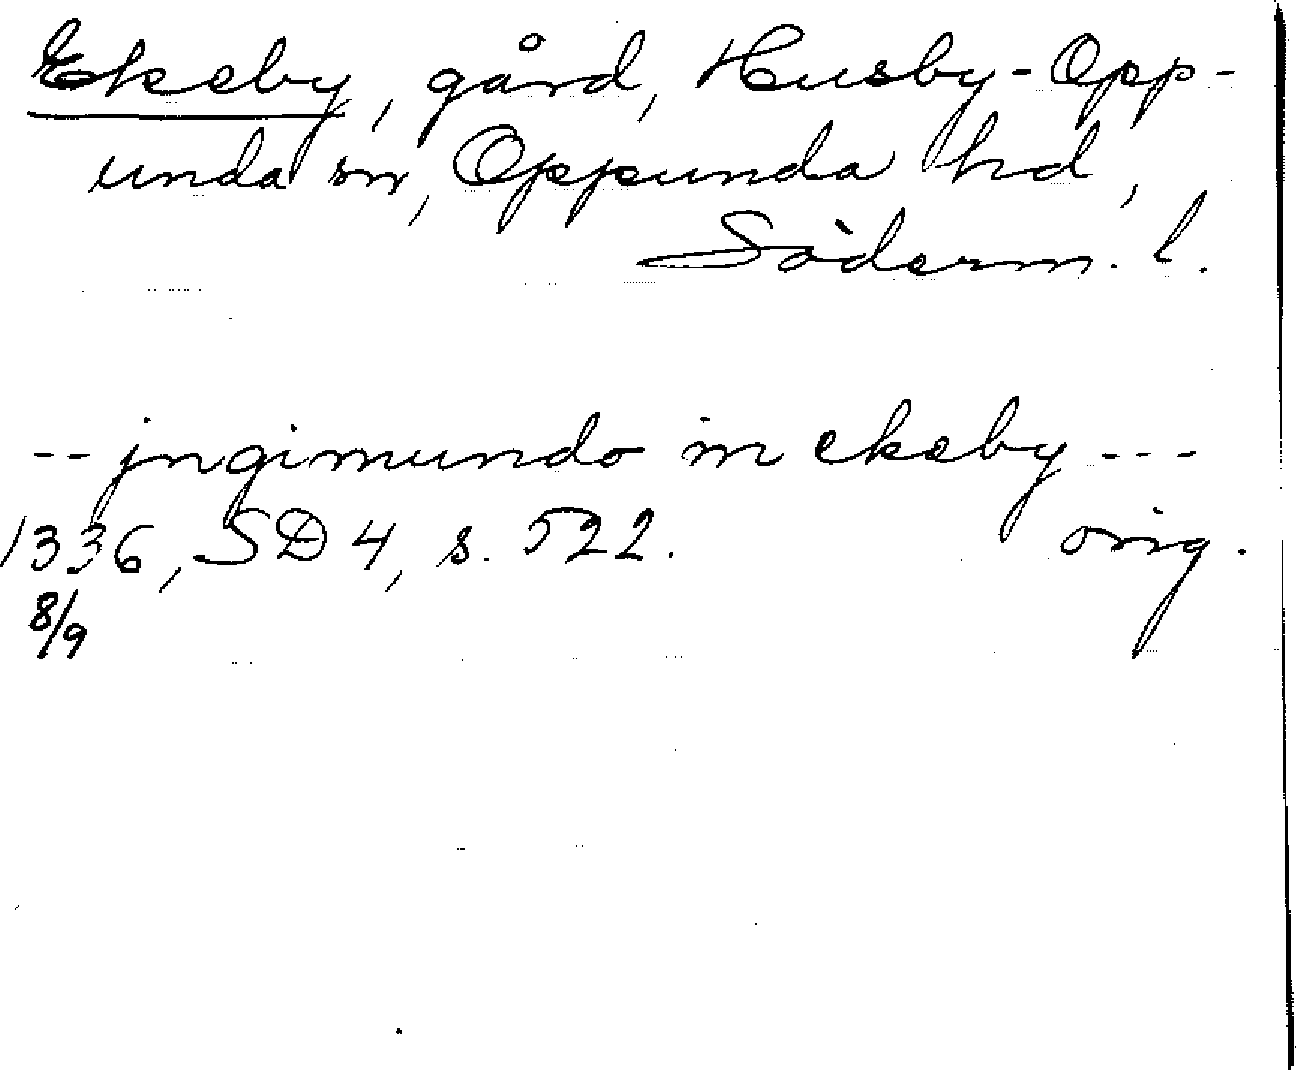 Ekeby, gård, Husby-Opp-
unda sn, Oppunda hd,
Söderm. l.
-- jngimundo in ekeby ---
1336, SD 4, s. 522. orig.
8/9